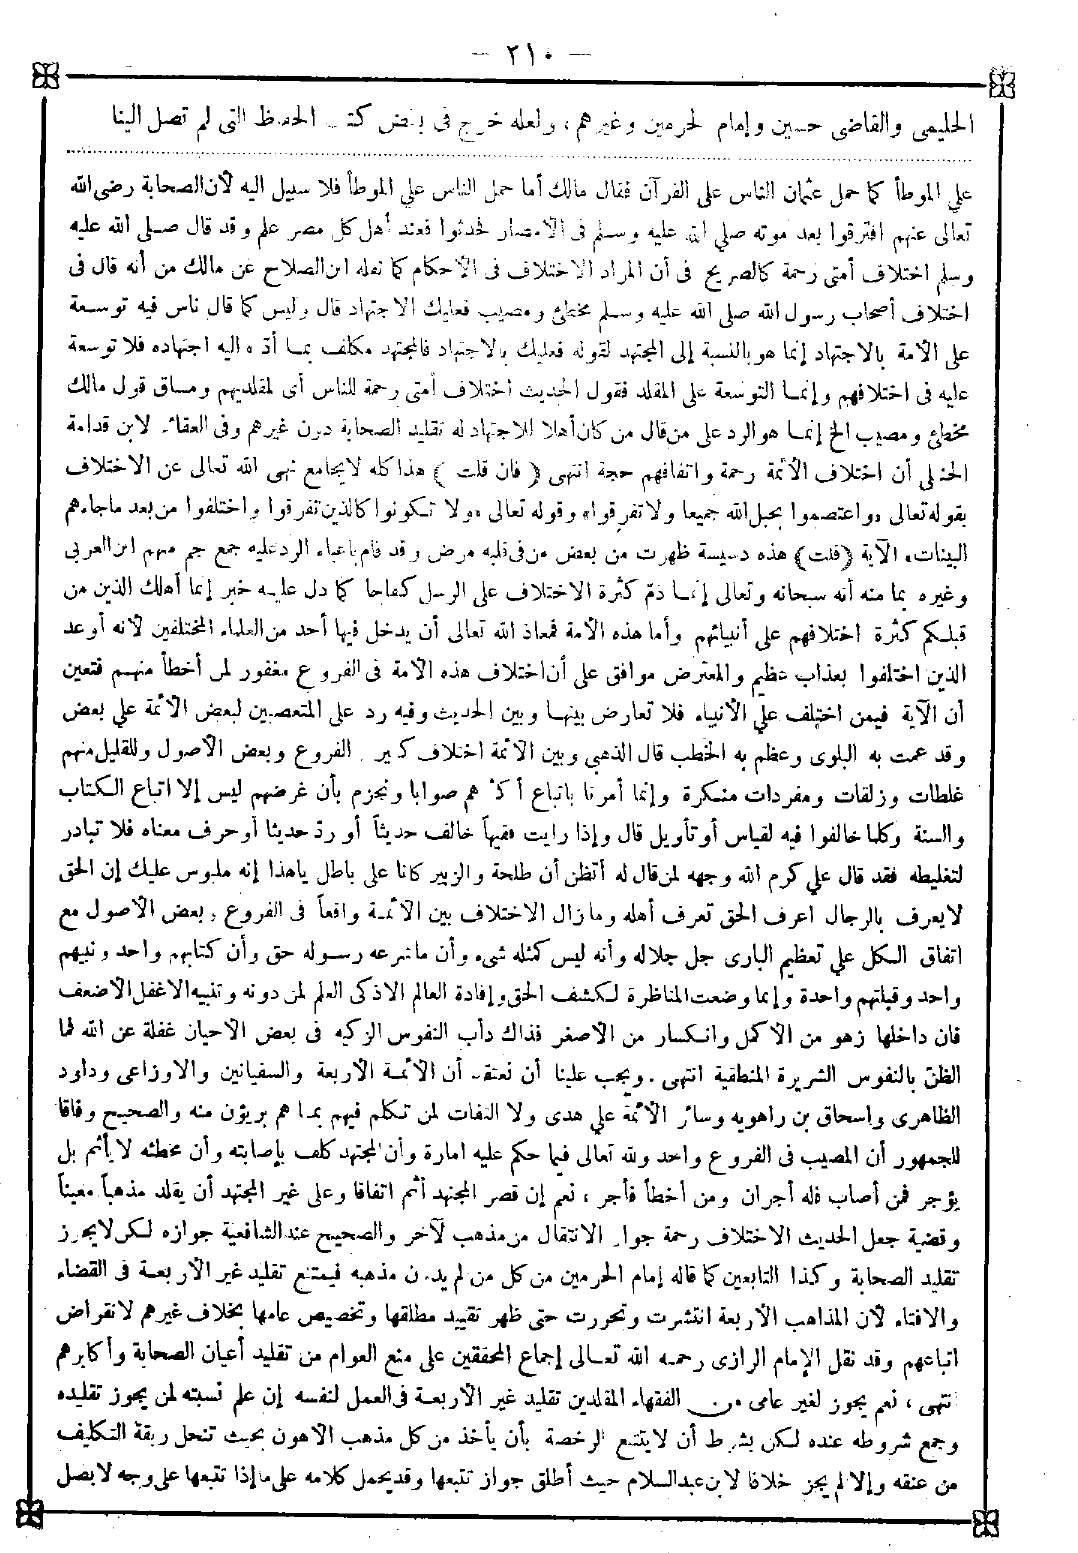 — ٢١٠ —
الحليمى والقاضى حسين وإمام الحرمين وغيرهم، ولعله خرج فى بعض كتب الحفاظ التى لم تصل الينا
على الموطأ كما حمل عثمان الناس على القرآن فقال مالك أما حمل الناس على الموطأ فلا سبيل اليه لأن الصحابة رضى الله
تعالى عنهم افترقوا بعد موته صلى الله عليه وسلم فى الأمصار فحدثوا فعند أهل كل مصر علم وقد قال صلى الله عليه
وسلم اختلاف أمتى رحمة كالصريح فى أن المراد الاختلاف فى الأحكام كما نقله ابن الصلاح عن مالك من أنه قال فى
اختلاف أصحاب رسول الله صلى الله عليه وسلم مخطئ ومصيب فعليك الاجتهاد قال وليس كما قال ناس فيه توسعة
على الأمة بالاجتهاد إنما هو بالنسبة إلى المجتهد لقوله فعليك بالاجتهاد فالمجتهد مكلف بما أدّه اليه اجتهاده فلا توسعة
عليه فى اختلافهم وإنما التوسعة على المقلد فقول الحديث اختلاف أمتى رحمة للناس أى لمقلديهم ومساق قول مالك
مخطئ ومصيب الخ إنما هو الرد على من قال من كان أهلا للاجتهاد له تقليد الصحابة دون غيرهم وفى العقائد لابن قدامة
الحنبلى أن اختلاف الأئمة رحمة واتفاقهم حجة انتهى (فان قلت) هذا كله لا يجامع نهى الله تعالى عن الاختلاف
بقوله تعالى «واعتصموا بحبل الله جميعا ولا تفرقوا» وقوله تعالى «ولا تكونوا كالذين تفرقوا واختلفوا من بعد ماجاءهم
البينات» الآية (قلت) هذه دسيسة ظهرت من بعض من فى قلبه مرض وقد قام باعباء الرد عليه جمع جم منهم ابن العربى
وغيره بما منه أنه سبحانه وتعالى إنما ذمّ كثرة الاختلاف على الرسل كفاحا كما دل عليه خبر إنما أهلك الذين من
قبلكم كثرة اختلافهم على أنبيائهم وأما هذه الأمة فمعاذ الله تعالى أن يدخل فيها أحد من العلماء المختلفين لأنه أوعد
الذين اختلفوا بعذاب عظيم والمعترض موافق على أن اختلاف هذه الأمة فى الفروع مغفور لمن أخطأ منهم فتعين
أن الآية فيمن اختلف على الأنبياء فلا تعارض بينها وبين الحديث وفيه رد على المتعصبين لبعض الأئمة على بعض
وقد عمت به البلوى وعظم به الخطب قال الذهبى وبين الأئمة اختلاف كبير الفروع وبعض الأصول وللقليل منهم
غلطات وزلقات ومفردات منكرة وإنما أمرنا باتباع أكثرهم صوابا ونجزم بأن غرضهم ليس إلا اتباع الكتاب
والسنة وكلما خالفوا فيه لقياس أو تأويل قال وإذا رايت فقيهاً خالف حديثاً أو ردّ حديثا أو حرف معناه فلا تبادر
لتغليطه فقد قال على كرم الله وجهه لمن قال له أتظن أن طلحة والزبير كانا على باطل ياهذا إنه ملبوس عليك إن الحق
لا يعرف بالرجال اعرف الحق تعرف أهله وما زال الاختلاف بين الأئمة واقعاً فى الفروع وبعض الأصول مع
اتفاق الكل على تعظيم البارى جل جلاله وأنه ليس كمثله شىء وأن ماشرعه رسوله حق وأن كتابهم واحد ونبيهم
واحد وقبلتهم واحدة وإنما وضعت المناظرة لكشف الحق وإفادة العالم الاذكى العلم لمن دونه وتنبيه الاغفل الاضعف
فان داخلها زهو من الاكمل وانكسار من الاصغر فذاك دأب النفوس الزكيه فى بعض الاحيان غفلة عن الله فما
الظنّ بالنفوس الشريرة المنطقية انتهى. ويجب علينا أن نعتقد أن الأئمة الأربعة والسفيانين والاوزاعى وداود
الظاهرى واسحاق بن راهويه وسائر الأئمّة على هدى ولا التفات لمن تكلم فيهم بما هم بريؤن منه والصحيح وفاقا
للجمهور أن المصيب فى الفروع واحد ولله تعالى فيما حكم عليه امارة وأن المجتهد كلف بإصابته وأن مخطئه لا يأثم بل
يؤجر فمن أصاب فله أجران ومن أخطأ فأجر، نعم إن قصر المجتهد أثم اتفاقا وعلى غير المجتهد أن يقلد مذهباً معيناً
وقضية جعل الحديث الاختلاف رحمة جواز الانتقال من مذهب لآخر والصحيح عند الشافعية جوازه لكن لا يجوز
تقليد الصحابة وكذا التابعين كما قاله إمام الحرمين من كل من لم يدون مذهبه فيمتنع تقليد غير الأربعة فى القضاء
والافتاء لأن المذاهب الأربعة انتشرت وتحررت حتى ظهر تقييد مطلقها وتخصيص عامها بخلاف غيرهم لانقراض
اتباعهم وقد نقل الإمام الرازى رحمه الله تعالى إجماع المحققين على منع العوام من تقليد أعيان الصحابة وأكابرهم
انتهى، نعم يجوز لغير عامى من الفقهاء المقلدين تقليد غير الأربعة فى العمل لنفسه إن علم نسبته لمن يجوز تقليده
وجمع شروطه عنده لكن بشرط أن لا يتتبع الرخصة بأن يأخذ من كل مذهب الأهون بحيث تنحل ربقة التكليف
من عنقه وإلا لم يجز خلافا لابن عبد السلام حيث أطلق جواز تتبعها وقد يحمل كلامه على ما إذا تتبعها على وجه لا يصل